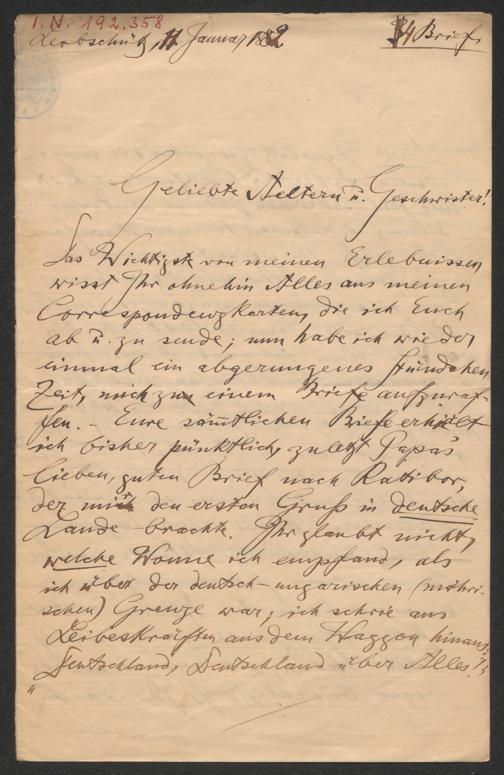 I.N. 192.358
Leobschütz, 11 Januar 1882 4 Brief.
Geliebte Aeltern u. Geschwister!
Das Wichtigste von meinen Erlebnissen
wisst Ihr ohnehin Alles aus meinen
Correspondenzkarten, die ich Euch
ab u. zu sende; nun habe ich wieder
einmal ein abgerungenes Stündchen
Zeit, mich zu einem Briefe aufzuraf-
fen. – Eure sämtlichen Briefe erhielt
ich bisher pünktlich, zuletzt Papa's
lieben, guten Brief nach Ratibor,
der mir den ersten Gruß in deutsche
Lande brachte. Ihr glaubt nicht,
welche Wonne ich empfand, als
ich über der deutsch-ungarischen (mähri-
schen) Grenze war; ich schrie aus
Leibeskräften aus dem Waggon hinaus:
„Deutschland, Deutschland über Alles!"